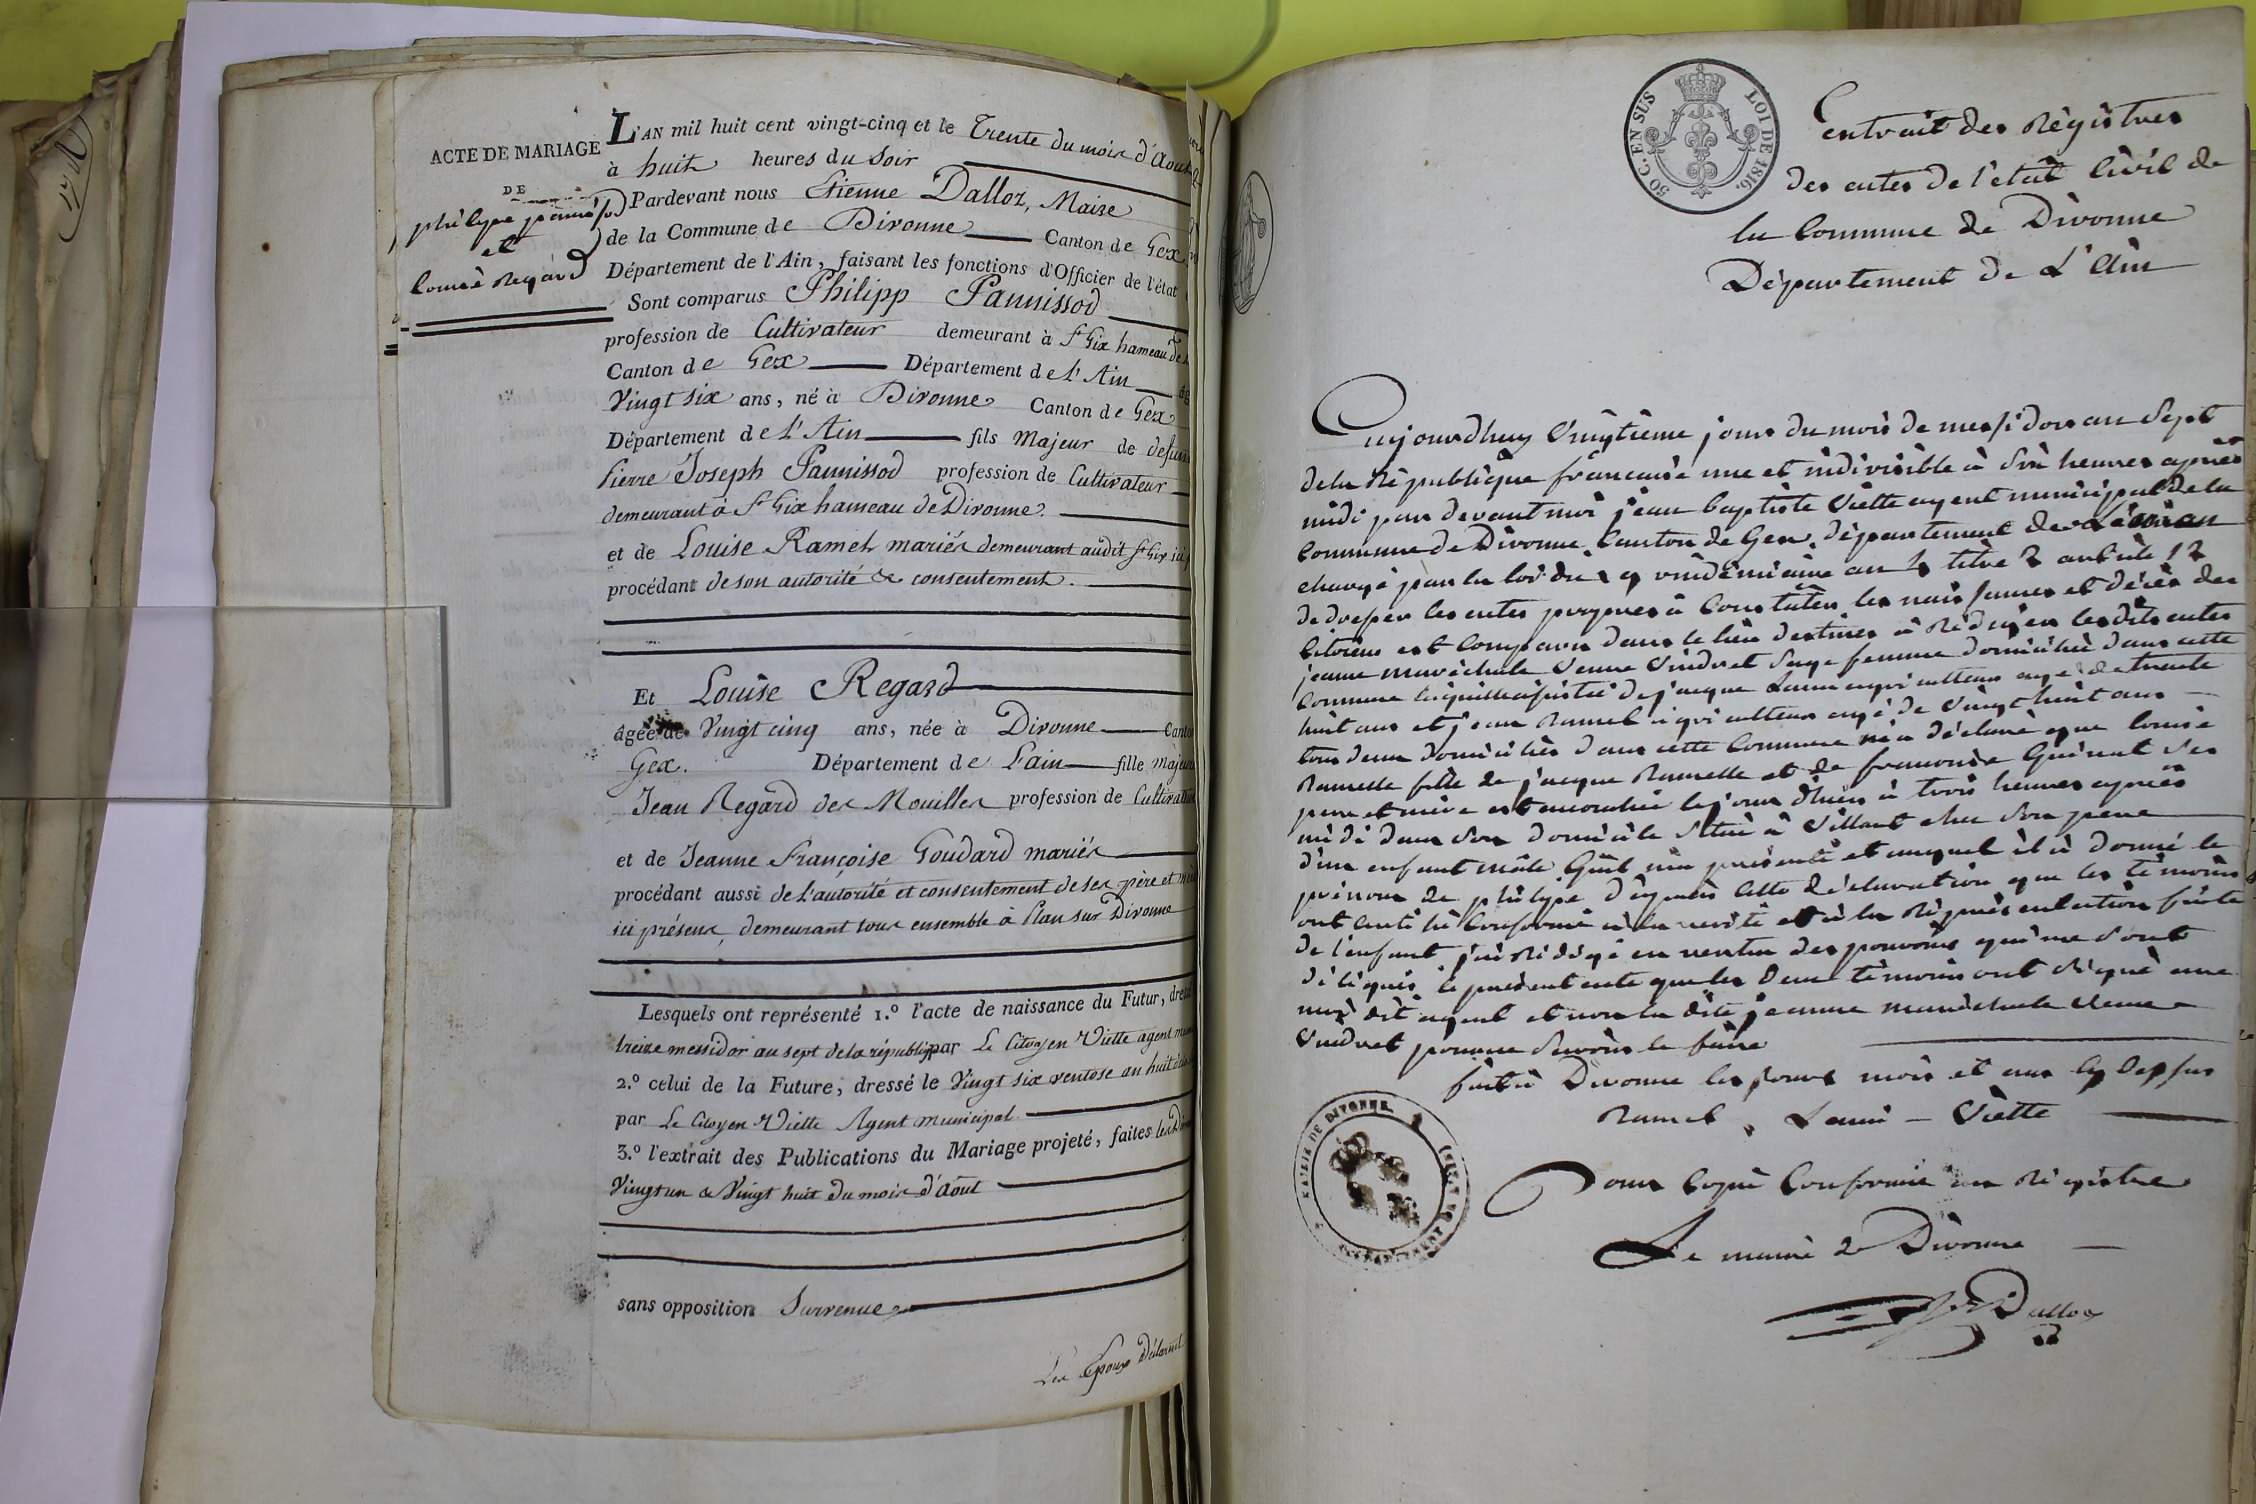 ACTE DE MARIAGE
DE
philipe pannissod
et
Louise Regard
L'AN mil huit cent vingt-cinq et le Trente du mois d'Aout
à huit heures du soir
Pardevant nous Etienne Dalloz, Maire
de la Commune de Divonne Canton de Gex
Département de l'Ain, faisant les fonctions d'Officier de l'état
Sont comparus Philipp Pannissod
profession de Cultivateur demeurant à St Gix hameau de
Canton de Gex Département de L'Ain
Vingt six ans, né à Divonne Canton de Gex
Département de L'Ain fils Majeur de defunt
Pierre Joseph Pannissod profession de Cultivateur
demeurant à St Gix hameau de Divonne.
et de Louise Ramel mariés demeurant audit St Gix ici
procédant de son autorité & consentement.
Et Louise Regard
âgée de Vingt cinq ans, née à Divonne Canton
Gex. Département de L'ain fille Majeure
Jean Regard des Mouilles profession de Cultivateur
et de Jeanne Françoise Goudard mariés
procédant aussi de L'autorité et consentement de ses père et mère
ici présens, demeurant tous ensemble à Plan sur Divonne
Lesquels ont représenté 1.º l'acte de naissance du Futur, dressé
treize messidor an sept de la républiq par Le Citoyen Viette agent
2.º celui de la Future, dressé le Vingt six ventose an huit
par Le Citoyen Viette Agent municipal
3.º l'extrait des Publications du Mariage projeté, faites les
Vingt un & Vingt huit du mois d'Aout
sans opposition Survenue
Les Epoux déclarent
50 C. EN SUS LOI DE 1816.
Extrait des Régistres
des actes de l'etat Civil de
la Commune de Divonne
Département de L'Ain
Aujourdhuy Vingtième jour du mois de messidor an Sept
de la République francaise une et indivisible à Six heures après
midi par devant moi jean baptiste Viette agent municipal de la
Commune de Divonne Canton de Gex, département du Léman
chargé par la loi du 19 vindémiaire an 4 titre 2 article 12
de dresser les actes propres à Constater les naissances et décès des
Citoiens est Comparu dans le lieu destinés à Rédiger les dits actes
jeanne maréchale Veuve Vindret Sage femme domiciliée dans cette
Commune laquelle assistée de jacque Lami agriculteur agé de trente
huit ans et jean Ramel agriculteur agé de Vingt huit ans
tous deux domiciliés dans cette Commune m'a déclaré que louise
Ramelle fille de jacque Ramelle et de francoise Guénat Ses
père et mère est accouchée le jour d'hier à trois heures après
midi dans Son domicile Situé à Villard chez Son père
d'un enfant mâle Qu'il m'a présenté et auquel il a donné le
prénom de philipe d'après Cette déclaration que les témoins
ont Certifié Conforme à la vérité et à la Réprésentation faite
de l'enfant j'ai Rédigé en vertu des pouvoirs qui me Sont
délégués le présent acte que les deux témoins ont Signé avec
moi dit agent et non la dite jeanne maréchale Veuve
Vindret pour ne Savoir le faire
fait à Divonne les jours mois et an Cy dessus
Ramel, Lami - Viette
Pour Copie Conforme au Régistre
Le maire de Divonne
Dalloz
MAIRIE DE DIVONNE